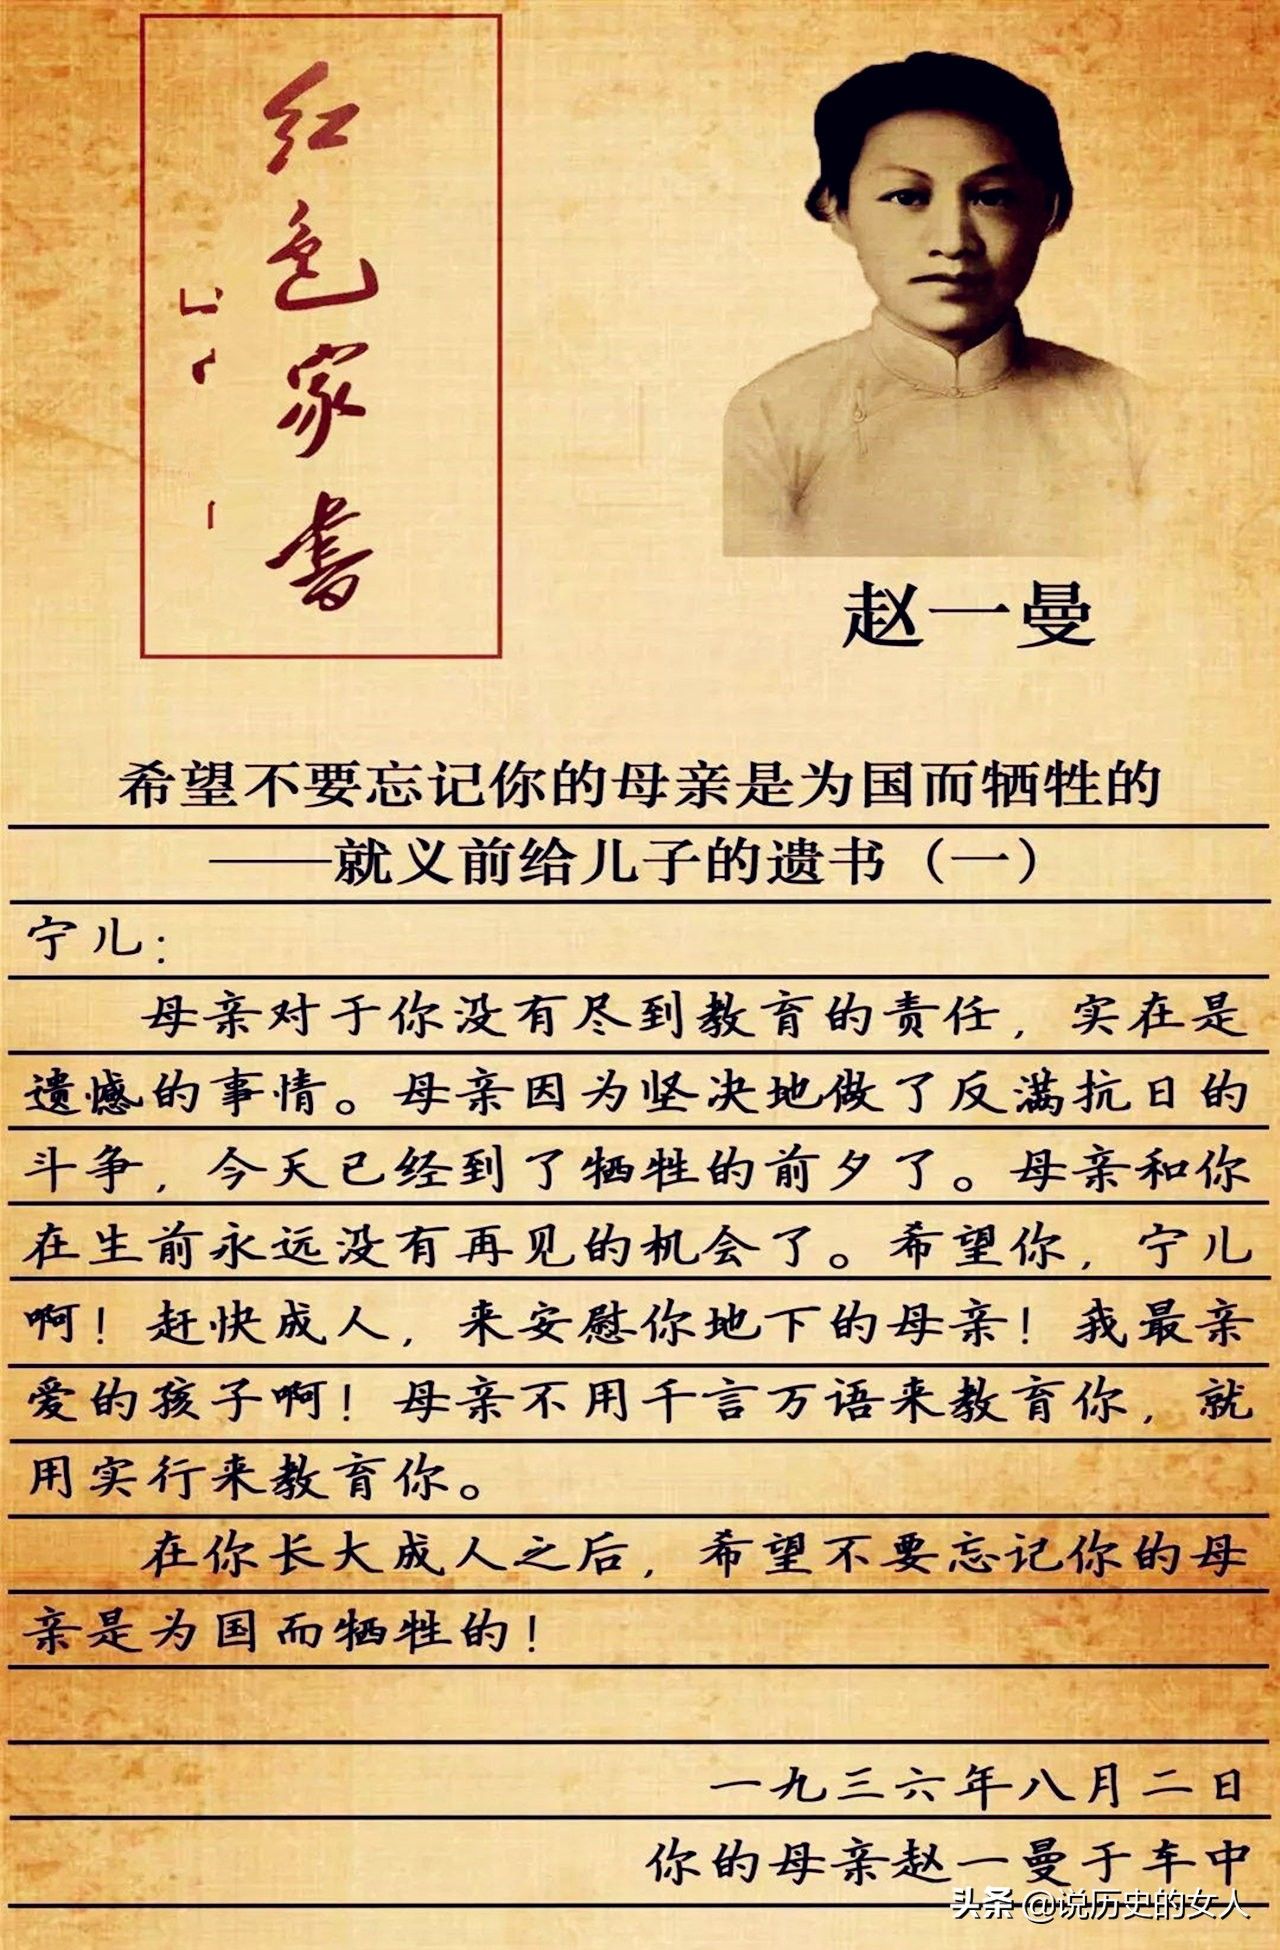 红色家书
赵一曼
希望不要忘记你的母亲是为国而牺牲的
——就义前给儿子的遗书（一）
宁儿：
母亲对于你没有尽到教育的责任，实在是
遗憾的事情。母亲因为坚决地做了反满抗日的
斗争，今天已经到了牺牲的前夕了。母亲和你
在生前永远没有再见的机会了。希望你，宁儿
啊！赶快成人，来安慰你地下的母亲！我最亲
爱的孩子啊！母亲不用千言万语来教育你，就
用实行来教育你。
在你长大成人之后，希望不要忘记你的母
亲是为国而牺牲的！
一九三六年八月二日
你的母亲赵一曼于车中
头条 @说历史的女人